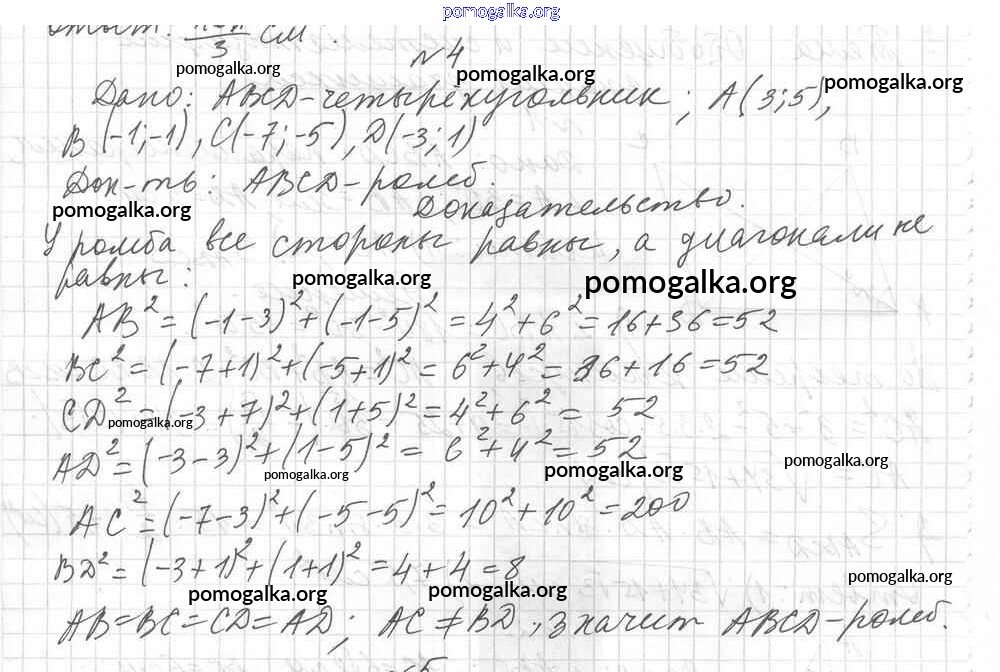 pomogalka.org
см.
pomogalka.org
№4
pomogalka.org
pomogalka.org
Дано: ABCD-четырёхугольник; A(3;5),
B(-1;-1), C(-7;-5), D(-3;1)
Док-ть: ABCD-ромб.
pomogalka.org
Доказательство.
У ромба все стороны равны, а диагонали не
равны:
pomogalka.org
pomogalka.org
AB²=(-1-3)²+(-1-5)²=4²+6²=16+36=52
BC²=(-7+1)²+(-5+1)²=6²+4²=36+16=52
CD²=(-3+7)²+(1+5)²=4²+6²= 52
pomogalka.org
AD²=(-3-3)²+(1-5)²= 6²+4²=52
pomogalka.org
pomogalka.org
pomogalka.org
AC²=(-7-3)²+(-5-5)²=10²+10²=200
BD²=(-3+1)²+(1+1)²=4+4=8
pomogalka.org
pomogalka.org
pomogalka.org
AB=BC=CD=AD; AC≠BD, значит ABCD-ромб.